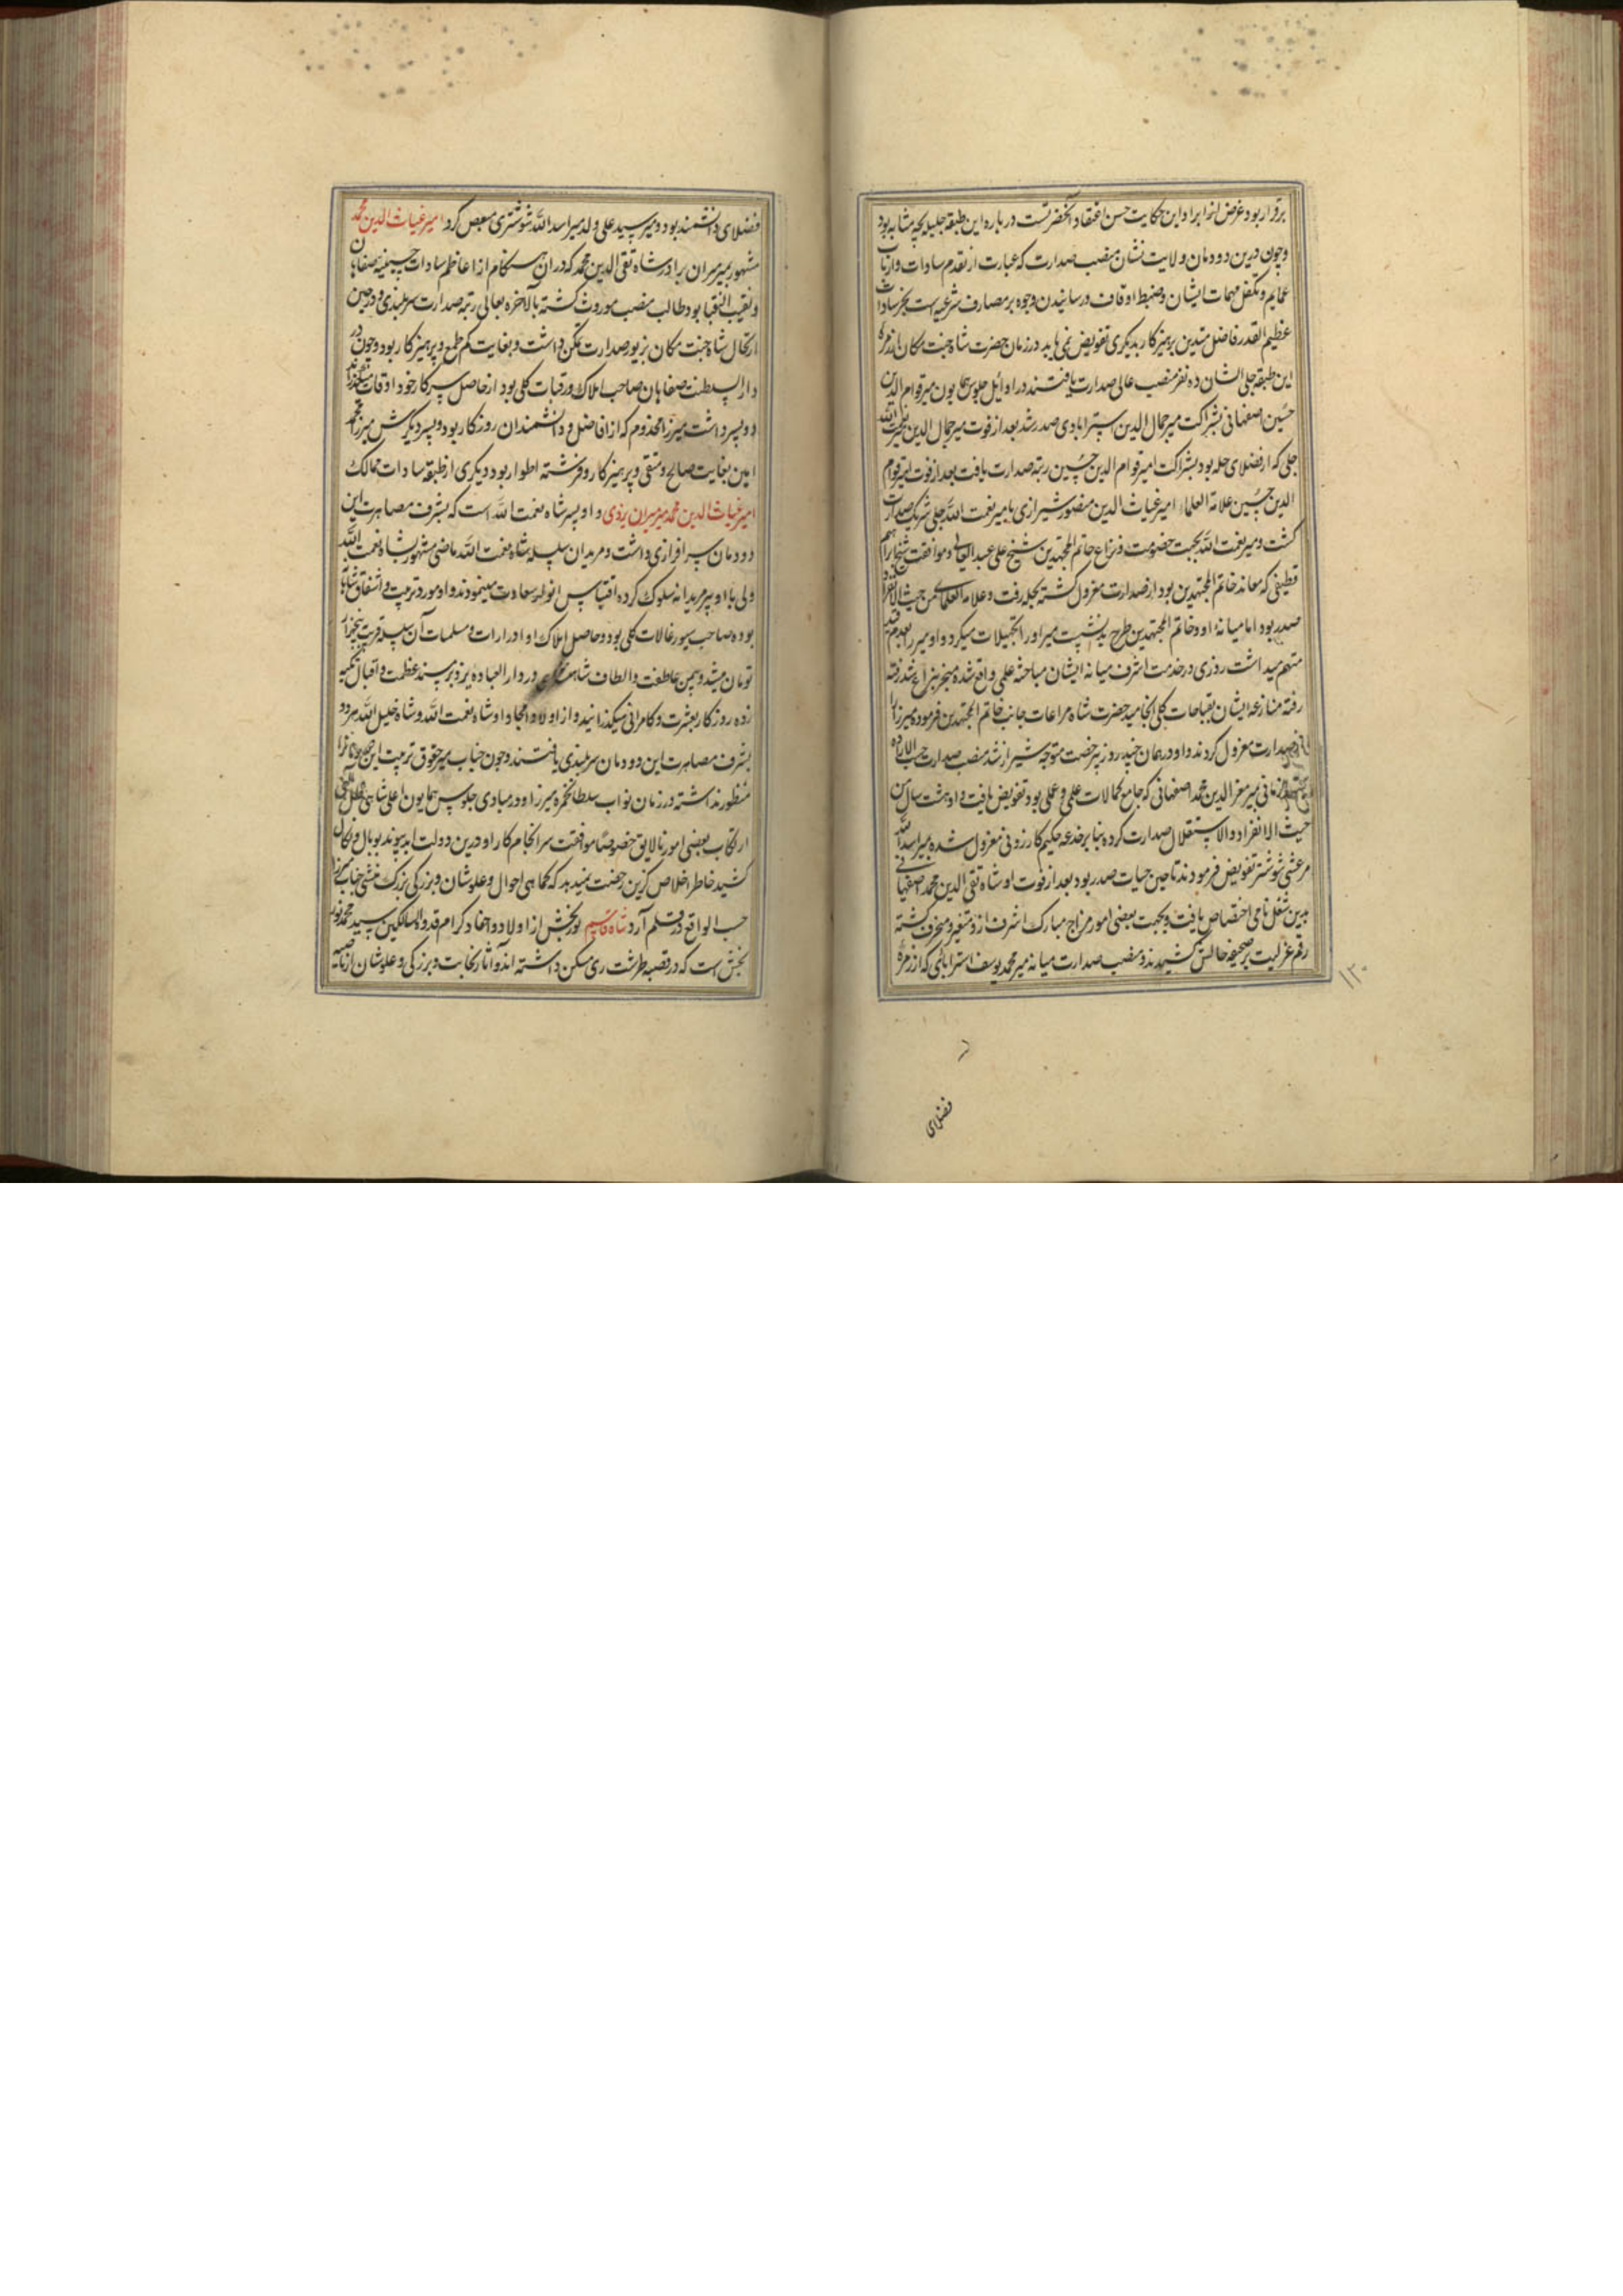 برقرار بود غرض از ایراد این حکایت حسن اعتقاد آنحضرتست درباره این طبقه جلیله بچه مثابه بود
و چون درین دودمان ولایت نشان منصب صدارت که عبارت از تقدم سادات و ارباب
عمایم و تکفل مهمات ایشان و ضبط اوقاف و رسانیدن وجوه بر مصارف شرعیه است بجز سادات
عظیم القدر فاضل متدین پرهیزکار بدیگری تفویض نمی یابد در زمان حضرت شاه جنت مکان از زمره
این طبقه جلی الشان ده نفر منصب عالی صدارت یافتند در اوایل جلوس همایون میر قوام الدین
حسین اصفهانی بشراکت میر جمال الدین استرابادی صدر شد بعد از فوت میر جمال الدین میر نعمت الله
حلی که از فضلای حله بود بشراکت امیر قوام الدین حسین رتبه صدارت یافت بعد از فوت امیر قوام
الدین حسین علامة العلماء امیر غیاث الدین منصور شیرازی با میر نعمت الله حلی شریک صدارت
گشت و میر نعمت الله بجهت خصومت و نزاع خاتم المجتهدین شیخ علی عبد العالی و موافقت شیخ ابراهیم
قطیفی که معاند خاتم المجتهدین بود از صدارت معزول گشته بحله رفت و علامة العلمائی من حیث الانفراد
صدر بود اما میانه او و خاتم المجتهدین طرح بد نشست میر او را تجهیلات میکرد و او میر را بعدم تقید
متهم میداشت روزی در خدمت اشرف میانه ایشان مباحثه علمی واقع شده منجر بنزاع شد رفته
رفته منازعه ایشان بقباحات کلی انجامید حضرت شاه مراعات جانب خاتم المجتهدین فرموده میرزا را
از صدارت معزول کردند و او در همان چند روز برخصت متوجه شیراز شد منصب صدارت حسب الاراده
بمیر معز الدین محمد اصفهانی که جامع کمالات علمی و عملی بود تفویض یافت و او هشت سال من
حیث الانفراد والاستقلال صدارت کرده بنا بر خدعه حکیم کازرونی معزول شده بمیر اسد الله
مرعشی شوشتر تفویض فرمودند تا حین حیات صدر بود بعد از فوت او شاه تقی الدین محمد اصفهانی
بدین شغل نامی اختصاص یافت و بجهت بعضی امور مزاج مبارک اشرف ازو متغیر و منحرف گشته
رقم عزلیت بر صحیفه حالش کشیدند و منصب صدارت میانه میر محمد یوسف استرابادی که از زمره
۱۳۰
فضلای
فضلای دانشمند بود و میر سید علی ولد میر اسد الله شوشتری مبعض کرد امیر غیاث الدین محمد
مشهور بمیر میران برادر شاه تقی الدین محمد که در آن هنگام از اعاظم سادات حسینیه صفاهان
و نقیب النقبا بود طالب منصب موروث گشته بالاخره بعالی رتبه صدارت سربلندی و در حین
ارتحال شاه جنت مکان بزیور صدارت تمکن داشت و بغایت کم طمع و پرهیزکار بود و چون در
دار السلطنت صفاهان صاحب املاک و رقبات کلی بود از حاصل سرکار خود اوقات میگذرانید
دو پسر داشت میرزا مخدوم که از افاضل و دانشمندان روزگار بود و پسر دیگرش میرزا محمد
امین بغایت صالح و متقی و پرهیزکار و فرشته اطوار بود دیگری از طبقه سادات ممالک
امیر غیاث الدین محمد میر میران یزدی و او پسر شاه نعمت الله است که بشرف مصاهرت این
دودمان سرافرازی داشت و مریدان سلسله شاه نعمت الله ماضی مشهور بشاه نعمت الله
ولی با او پیر مریدانه سلوک کرده اقتباس انوار سعادت مینمودند و او مورد تربیت و اشفاق شاهانه
بوده صاحب سیورغالات کلی بود و حاصل املاک او و ادرارات و مسلمیات آن سلسله قریب پنجهزار
تومان میشد و بیمن عاطفت و الطاف شاهی در دار العباده یزد بر مسند عظمت و اقبال تکیه
زده روزگار بعشرت و کامرانی میگذرانید و از اولاد امجاد او شاه نعمت الله و شاه خلیل الله هر دو
بشرف مصاهرت این دودمان سربلندی یافتند و چون جناب میر حقوق تربیت این
منظور نداشته در زمان نواب سلطان حمزه میرزا و در مبادی جلوس همایون اعلی شاهی ظل اللهی
ارتکاب بعضی امور نالایق خصوصا موافقت سرانجام کار او درین دولت ابد پیوند بوبال و نکال
کشید خاطر اخلاص گزین رخصت نمیدهد که کماهی احوال و علوشان و بزرگی بزرگ منشی جناب میر را
حسب الواقع در قلم آرد شاه قاسم نوربخش از اولاد و احفاد کرام قدوة السالکین سید محمد نور
بخش است که در قصبه طرشت ری مسکن داشته اند و آثار نجابت و بزرگی و علوشان از ناصیه